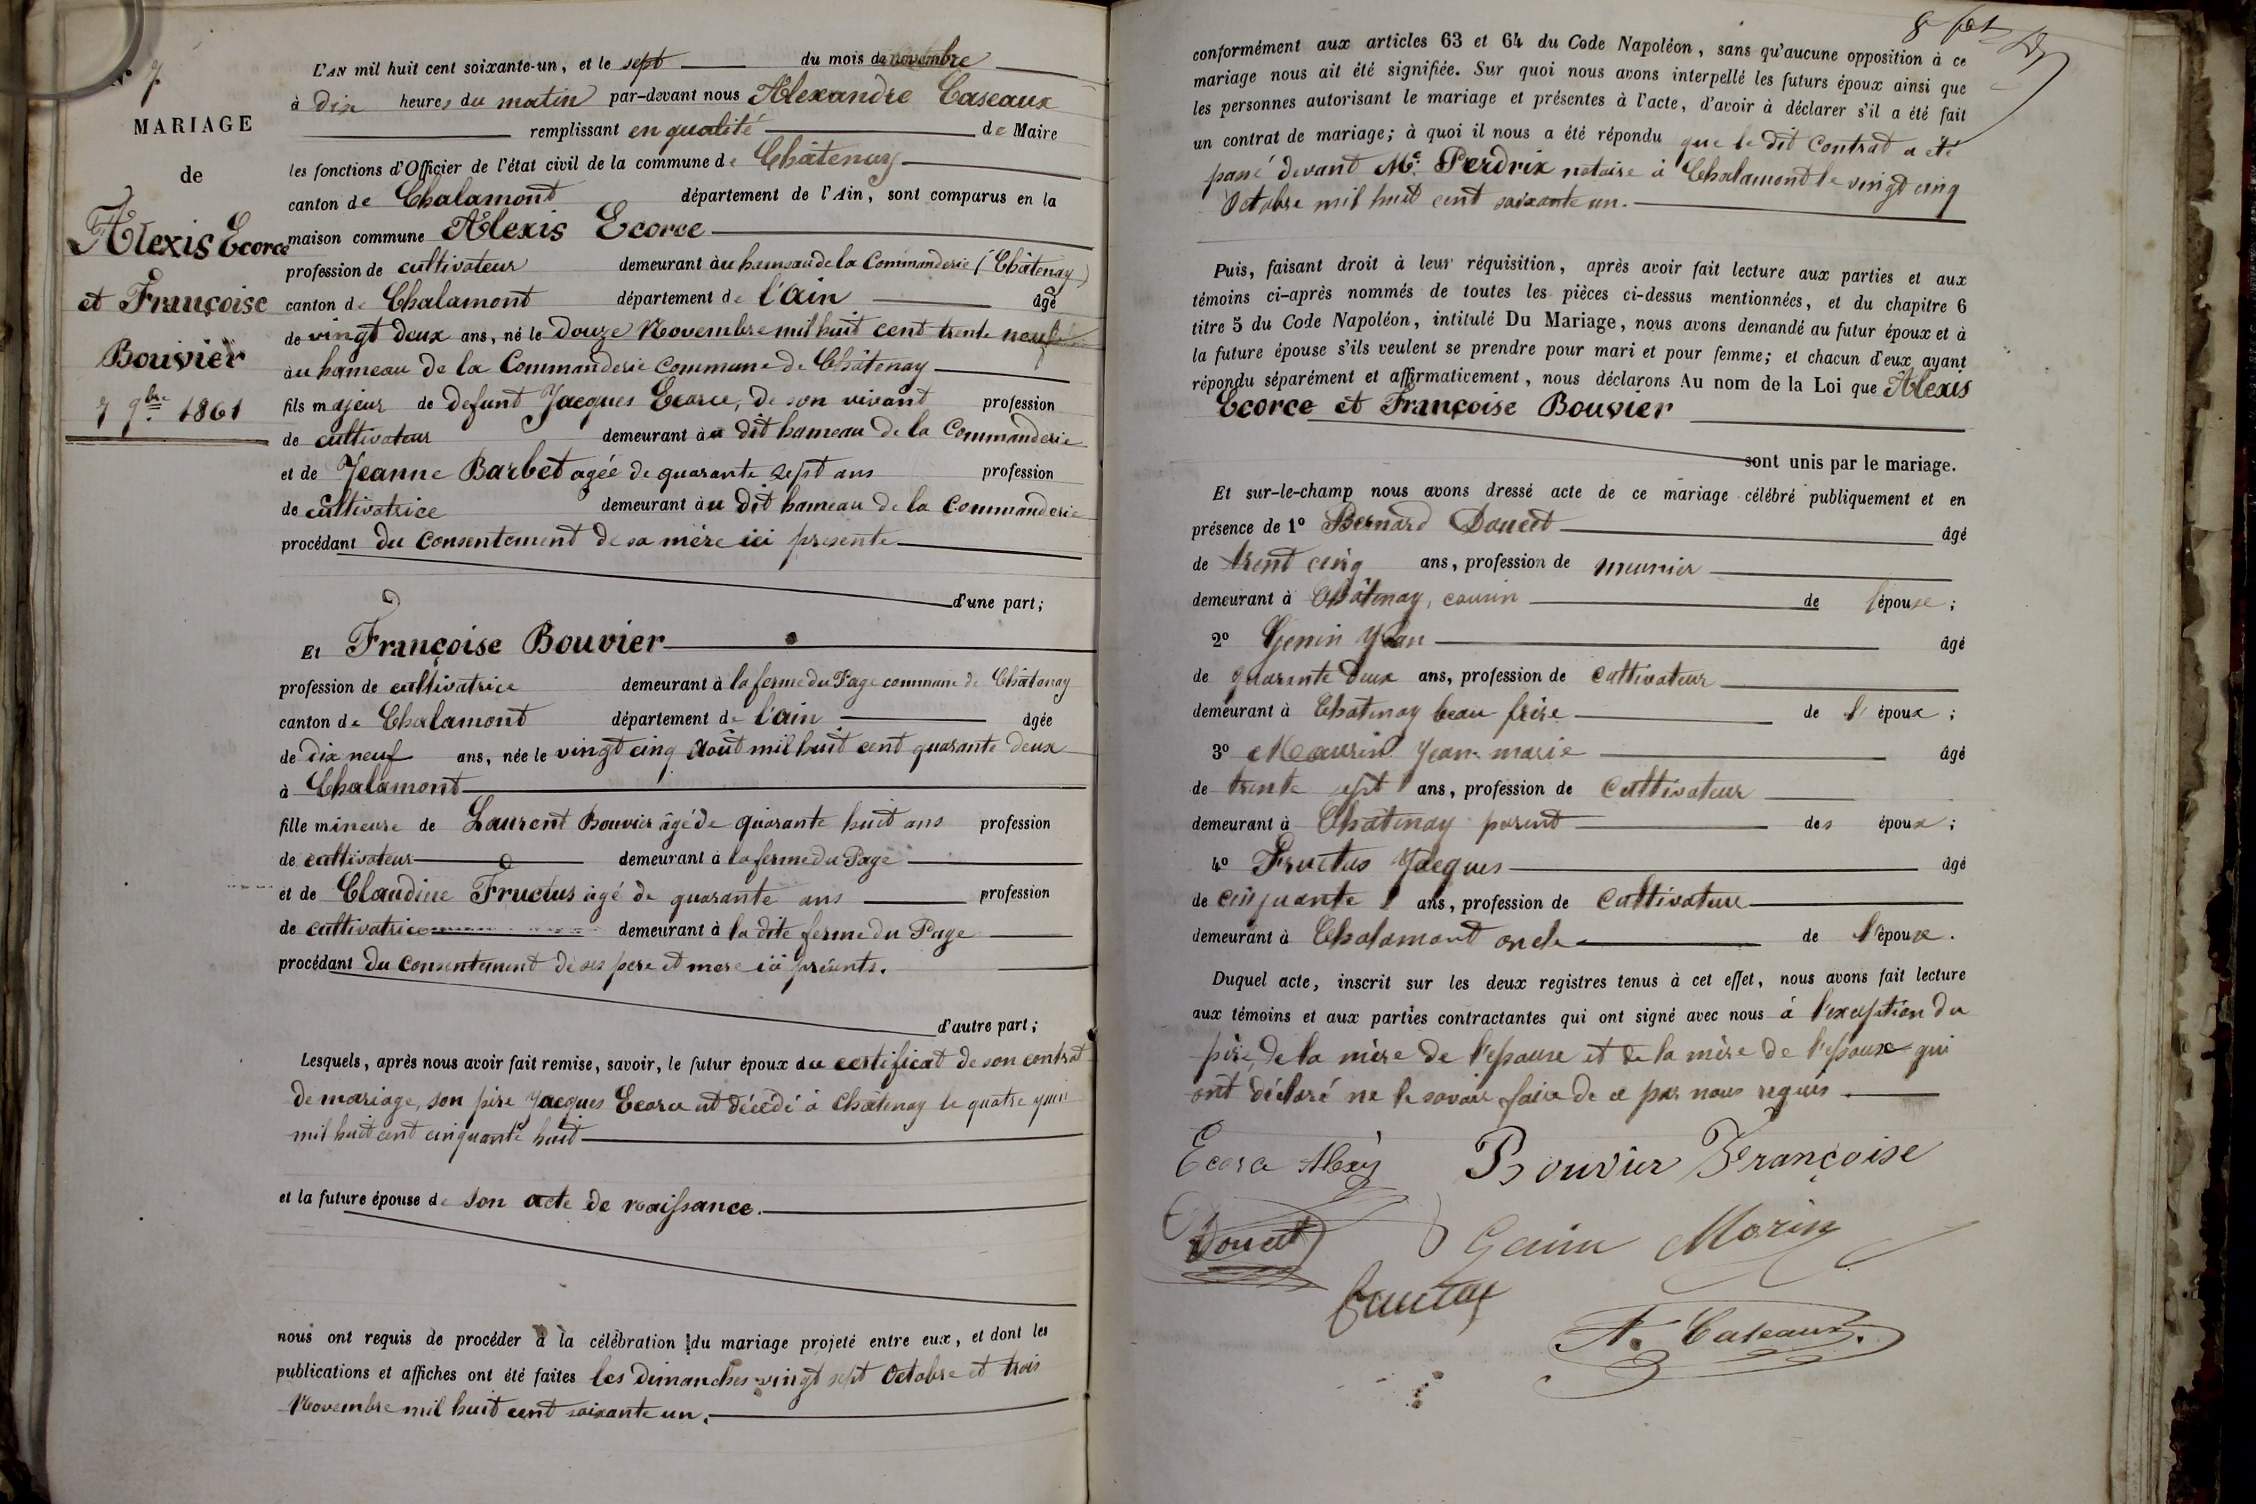 N° 7
MARIAGE
de
Alexis Ecorce
et Françoise
Bouvier
7 9bre 1861
L'AN mil huit cent soixante-un, et le sept du mois de novembre
à dix heures du matin par-devant nous Alexandre Caseaux
remplissant en qualité de Maire
les fonctions d'Officier de l'état civil de la commune de Châtenay
canton de Chalamont département de l'Ain, sont comparus en la
maison commune Alexis Ecorce
profession de cultivateur demeurant à au hameau de la Commanderie (Châtenay)
canton de Chalamont département de l'Ain âgé
de vingt deux ans, né le Douze Novembre mil huit cent trente neuf
à au hameau de la Commanderie Commune de Châtenay
fils majeur de defunt Jacques Ecorce, de son vivant profession
de cultivateur demeurant à au dit hameau de la Commanderie
et de Jeanne Barbet agée de quarante sept ans profession
de cultivatrice demeurant à au dit hameau de la Commanderie
procédant du consentement de sa mére ici presente
d'une part;
Et Françoise Bouvier
profession de cultivatrice demeurant à la ferme du Page commune de Châtenay
canton de Chalamont département de l'ain âgée
de dix neuf ans, née le vingt cinq Août mil huit cent quarante deux
à Chalamont
fille mineure de Laurent Bouvier âgé de quarante huit ans profession
de cultivateur demeurant à la ferme du Page
et de Claudine Fructus âgé de quarante ans profession
de cultivatrice demeurant à la dite ferme du Page
procédant du consentement de ses pere et mere ici présents.
d'autre part;
Lesquels, après nous avoir fait remise, savoir, le futur époux du certificat de son contrat
de mariage, son père Jacques Ecorce est décédé à Châtenay le quatre
mil huit cent cinquante huit
et la future épouse de son acte de naissance.
nous ont requis de procéder à la célébration du mariage projeté entre eux, et dont les
publications et affiches ont été faites les dimanches vingt sept Octobre et trois
Novembre mil huit cent soixante un.
conformément aux articles 63 et 64 du Code Napoléon, sans qu'aucune opposition à ce
mariage nous ait été signifiée. Sur quoi nous avons interpellé les futurs époux ainsi que
les personnes autorisant le mariage et présentes à l'acte, d'avoir à déclarer s'il a été fait
un contrat de mariage; à quoi il nous a été répondu que le dit Contrat a été
passé devant Me Perdrix notaire à Chalamont le vingt cinq
Octobre mil huit cent soixante un.
Puis, faisant droit à leur réquisition, après avoir fait lecture aux parties et aux
témoins ci-après nommés de toutes les pièces ci-dessus mentionnées, et du chapitre 6
titre 5 du Code Napoléon, intitulé Du Mariage, nous avons demandé au futur époux et à
la future épouse s'ils veulent se prendre pour mari et pour femme; et chacun d'eux ayant
répondu séparément et affirmativement, nous déclarons Au nom de la Loi que Alexis
Ecorce et Françoise Bouvier
sont unis par le mariage.
Et sur-le-champ nous avons dressé acte de ce mariage célébré publiquement et en
présence de 1° Bernard Doucet âgé
de trent cinq ans, profession de meunier
demeurant à Châtenay, cousin de l'épouse;
2° Genin Jean âgé
de quarante deux ans, profession de cultivateur
demeurant à Châtenay beau-frère de l'époux;
3° Maurin Jean-marie âgé
de trente sept ans, profession de Cultivateur
demeurant à Châtenay parent des époux;
4° Fructus Jacques âgé
de cinquante ans, profession de Cultivateur
demeurant à Chalamont oncle de l'épouse.
Duquel acte, inscrit sur les deux registres tenus à cet effet, nous avons fait lecture
aux témoins et aux parties contractantes qui ont signé avec nous à l'exception du
père, de la mère de l'epouse et de la mère de l'epoux qui
ont déclaré ne le savoir faire de ce par nous requis.
Ecorce Alexis Bouvier Françoise
Doucet Genin Morin
A. Caseaux.